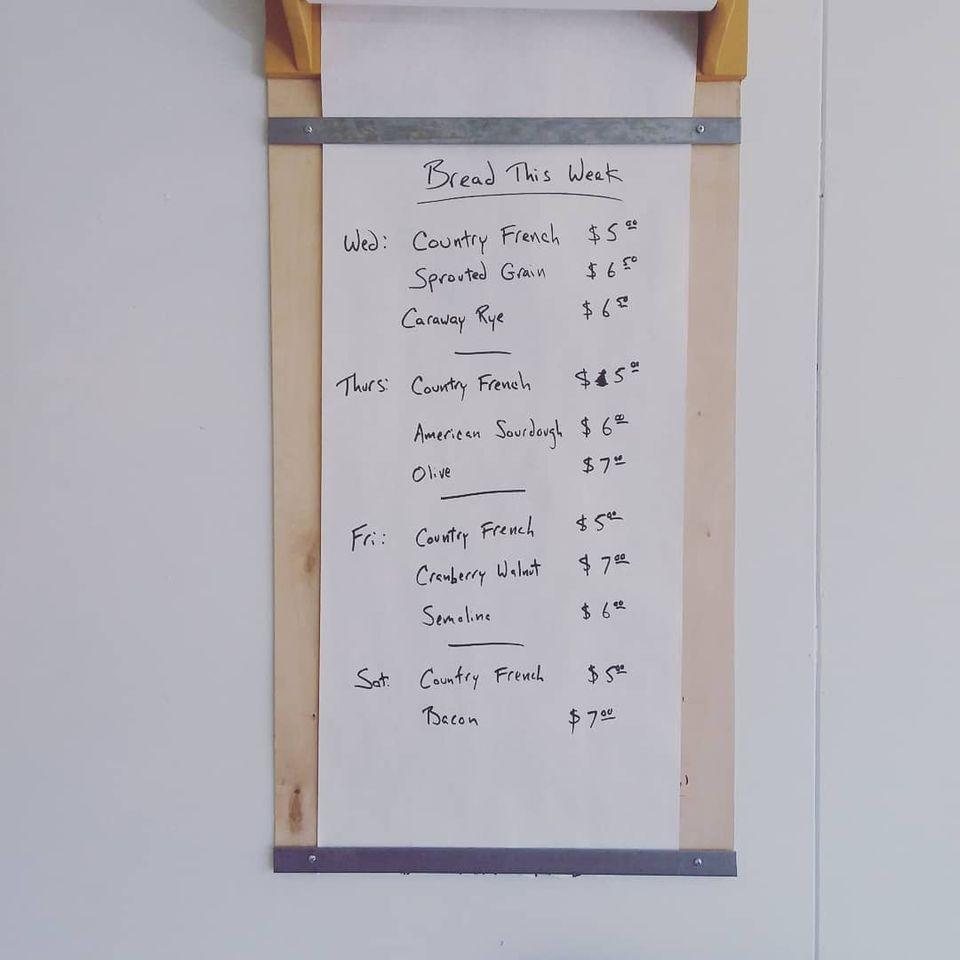 Bread This Week
Wed: Country French $5.00
Sprouted Grain $6.50
Caraway Rye $6.50
Thurs: Country French $5.00
American Sourdough $6.00
Olive $7.00
Fri: Country French $5.00
Cranberry Walnut $7.00
Semolina $6.00
Sat: Country French $5.00
Bacon $7.00